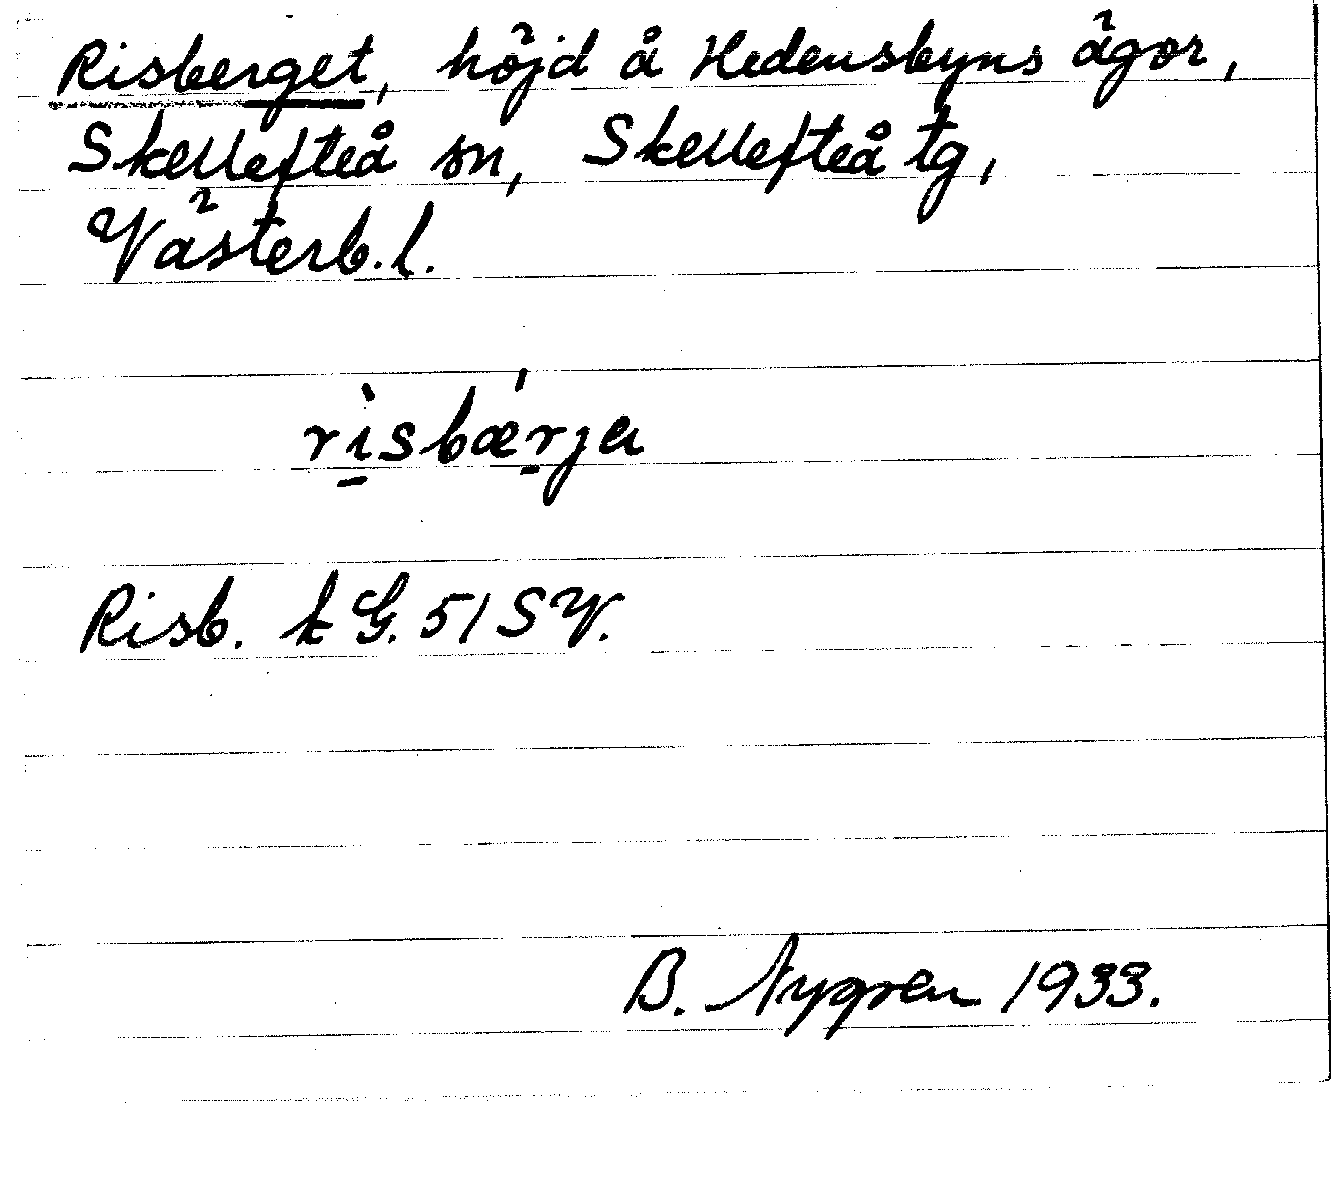 Risberget, höjd å Hedensbyns ägor,
Skellefteå sn, Skellefteå tg,
Västerb. l.
rìsbǽrja
Risb. k G. 51 SV.
B. Nygren 1933.